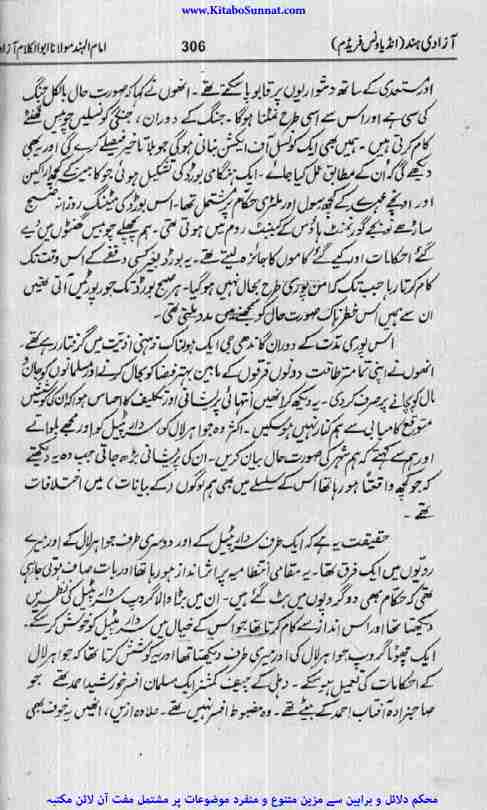 www.KitaboSunnat.com
آزادی ہند (انڈیا ونس فریڈم)
306
امام الہند مولانا ابوالکلام آزاد
اور مستعدی کے ساتھ دشواریوں پر قابو پا سکتے تھے۔ انھوں نے کہا کہ صورت حال بالکل جنگ
کی سی ہے اور اس سے اسی طرح نمٹنا ہوگا۔ جنگ کے دوران، جنگی کونسلیں چوبیس گھنٹے
کام کرتی ہیں۔ ہمیں بھی ایک کونسل آف ایکشن بنانی ہوگی جو بلا تاخیر فیصلے کرے گی اور یہ بھی
دیکھے گی کہ ان کے مطابق عمل کیا جائے۔ ایک ہنگامی بورڈ کی تشکیل ہوئی جو کابینہ کے کچھ اراکین
اور اونچے عہدے کے کچھ سول اور ملٹری حکام پر مشتمل تھا۔ اس بورڈ کی میٹنگ روزانہ صبح
ساڑھے نو بجے گورنمنٹ ہاؤس کے کیبنٹ روم میں ہوتی تھی۔ ہم پچھلے چوبیس گھنٹوں میں دیے
گئے احکامات اور کیے گئے کاموں کا جائزہ لیتے تھے۔ یہ بورڈ بغیر کسی وقفے کے اس وقت تک
کام کرتا رہا جب تک کہ امن پوری طرح بحال نہیں ہو گیا۔ ہر صبح بورڈ تک جو رپورٹیں آتی تھیں
ان سے ہمیں اس خطرناک صورت حال کو سمجھنے میں مدد ملتی تھی۔
اس پوری مدت کے دوران گاندھی جی ایک ہولناک ذہنی اذیت میں گرفتار رہے تھے۔
انھوں نے اپنی تمام تر طاقت دونوں فرقوں کے مابین بہتر فضا کو بحال کرنے اور مسلمانوں کو جان و
مال کو بچانے پر صرف کر دی۔ یہ دیکھ کر انھیں انتہائی پریشانی اور تکلیف کا احساس ہوا کہ ان کی کوششیں
متوقع کامیابی سے ہم کنار نہیں ہو سکیں۔ اکثر وہ جواہر لال کو، سردار پٹیل کو اور مجھے بلواتے
اور ہم سے کہتے کہ ہم شہر کی صورت حال بیان کریں۔ ان کی پریشانی بڑھ جاتی جب وہ یہ دیکھتے
کہ جو کچھ واقعتاً ہو رہا تھا اس کے سلسلے میں بھی ہم لوگوں (کے بیانات) میں اختلافات
تھے۔
حقیقت یہ ہے کہ ایک طرف سردار پٹیل کے اور دوسری طرف جواہر لال کے اور میرے
رویوں میں ایک فرق تھا۔ یہ مقامی انتظامیہ پر اثر انداز ہو رہا تھا اور یہ بات صاف ہوتی جا رہی
تھی کہ حکام بھی دو گروہوں میں بٹ گئے ہیں۔ ان میں بڑا والا گروپ سردار پٹیل کی نظریں
دیکھتا تھا اور اس انداز سے کام کرتا تھا جو اس کے خیال میں سردار پٹیل کو خوش کر سکے۔
ایک چھوٹا گروپ جواہر لال کی اور میری طرف دیکھتا تھا اور یہ کوشش کرتا تھا کہ جواہر لال
کے احکامات کی تعمیل ہو سکے۔ دہلی کے چیف کمشنر ایک مسلمان افسر خورشید احمد تھے جو
صاحبزادہ آفتاب احمد کے بیٹے تھے۔ وہ مضبوط افسر نہیں تھے۔ علاوہ ازیں، انھیں یہ خوف بھی
محکم دلائل و براہین سے مزین متنوع و منفرد موضوعات پر مشتمل مفت آن لائن مکتبہ